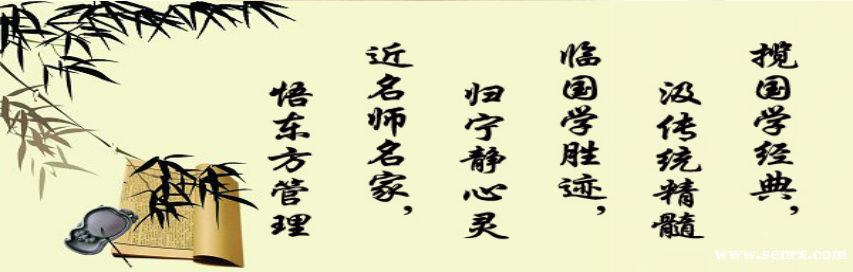 揽国学经典，
汲传统精髓
临国学胜迹，
归宁静心灵
近名师名家，
悟东方管理
www.senrx.com